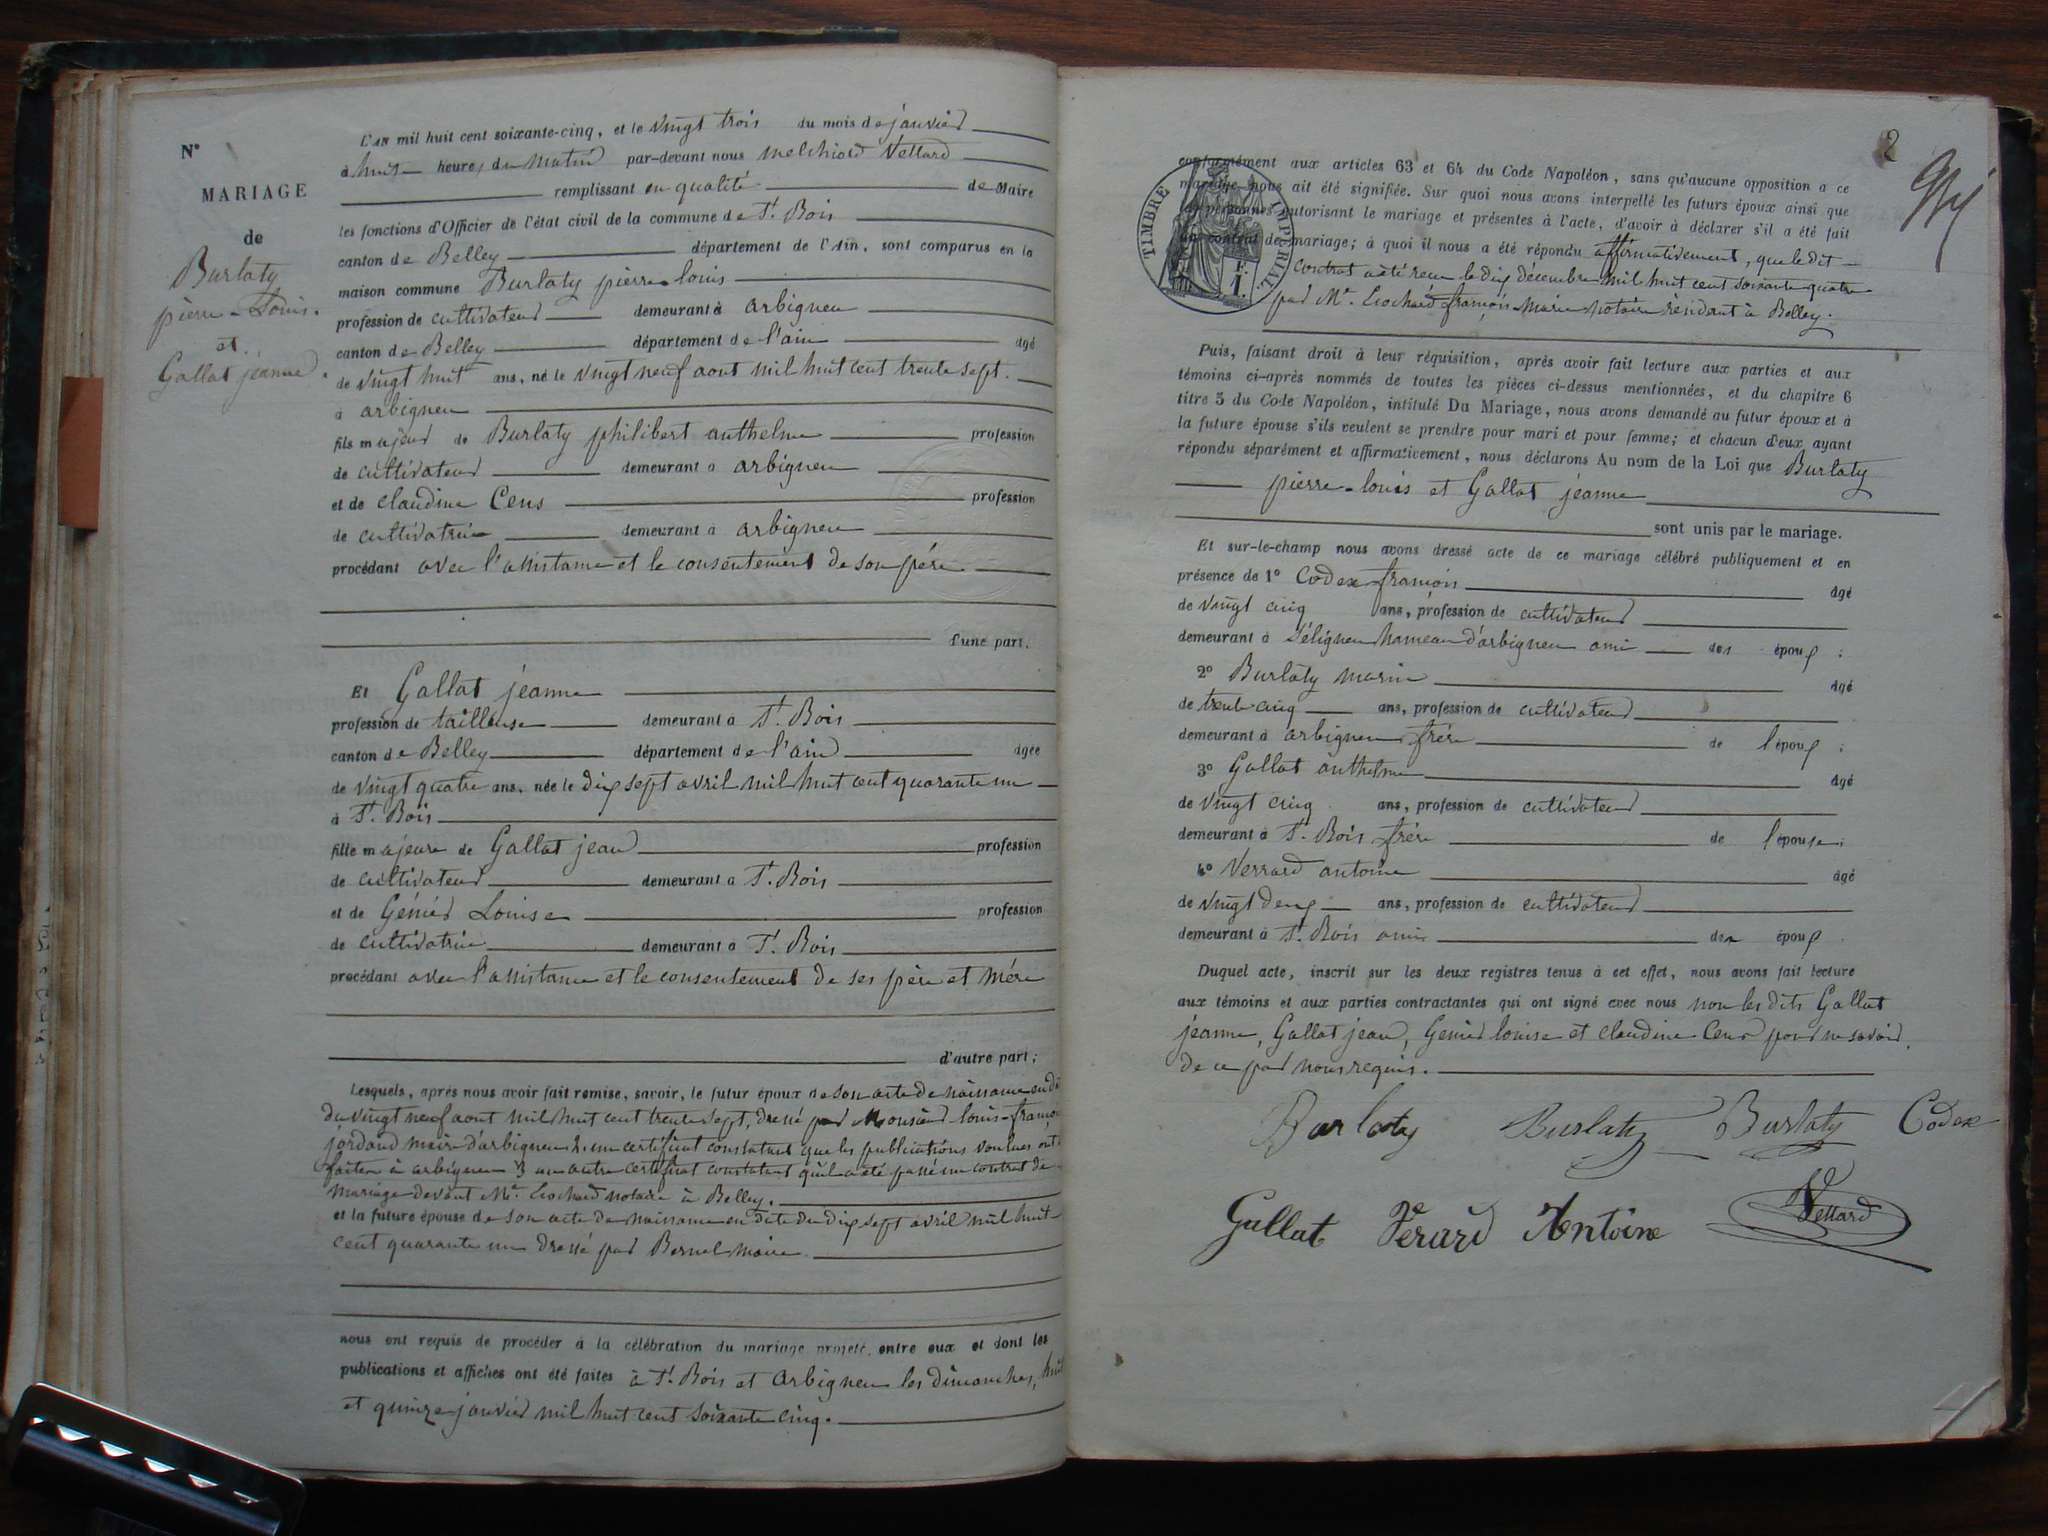 N°
MARIAGE
de
Burlaty
pierre-Louis.
et
Gallat jeanne.
L'AN mil huit cent soixante-cinq, et le vingt trois du mois de janvier
à huit heures du matin par-devant nous melchiord Vettard
remplissant en qualité de Maire
les fonctions d'Officier de l'état civil de la commune de St. Bois
canton de Belley département de l'Ain, sont comparus en la
maison commune Burlaty pierre-louis
profession de cultivateur demeurant à arbigneu
canton de Belley département de l'ain âgé
de vingt huit ans, né le vingt neuf aout mil huit cent trente sept.
à arbigneu
fils majeur de Burlaty philibert anthelme profession
de cultivateur demeurant à arbigneu
et de claudine Cens profession
de cultivatrice demeurant à arbigneu
procédant avec l'assistance et le consentement de son père
d'une part.
Et Gallat jeanne
profession de tailleuse demeurant à St. Bois
canton de Belley département de l'ain âgée
de vingt quatre ans, née le dix sept avril mil huit cent quarante un
à St. Bois
fille majeure de Gallat jean profession
de cultivateur demeurant à St. Bois
et de Génier Louise profession
de cultivatrice demeurant à St. Bois
procédant avec l'assistance et le consentement de ses père et mère
d'autre part;
Lesquels, après nous avoir fait remise, savoir, le futur époux de son acte de naissance en
du vingt neuf aout mil huit cent trente sept, dressé par Monsieur louis-françois
jordand maire d'arbigneu 2. un certificat constatant que les publications voulues ont
faites à arbigneu 3 un autre certificat constatant qu'il a été passé un contrat de
mariage devant Me. Liochard notaire à Belley.
et la future épouse de son acte de naissance en date du dix sept avril mil huit
cent quarante un dressé par Bernel maire
nous ont requis de procéder à la célébration du mariage projeté, entre eux et dont les
publications et affiches ont été faites à St. Bois et arbigneu les dimanches, huit
et quinze janvier mil huit cent soixante cinq.
2
TIMBRE IMPÉRIAL
F.
1.
conformément aux articles 63 et 64 du Code Napoléon, sans qu'aucune opposition a ce
mariage nous ait été signifiée. Sur quoi nous avons interpellé les futurs époux ainsi que
les personnes autorisant le mariage et présentes à l'acte, d'avoir à déclarer s'il a été fait
un contrat de mariage; à quoi il nous a été répondu affirmativement, que le dit
contrat a été reçu le dix décembre mil huit cent soixante quatre
par Me. Liochard françois-marie notaire résidant à Belley.
Puis, faisant droit à leur réquisition, après avoir fait lecture aux parties et aux
témoins ci-après nommés de toutes les pièces ci-dessus mentionnées, et du chapitre 6
titre 5 du Code Napoléon, intitulé Du Mariage, nous avons demandé au futur époux et à
la future épouse s'ils veulent se prendre pour mari et pour femme; et chacun d'eux ayant
répondu séparément et affirmativement, nous déclarons Au nom de la Loi que Burlaty
pierre-louis et Gallat jeanne
sont unis par le mariage.
Et sur-le-champ nous avons dressé acte de ce mariage célébré publiquement et en
présence de 1° Codex françois âgé
de vingt cinq ans, profession de cultivateur
demeurant à Séligneu hameau d'arbigneu ami des époux;
2° Burlaty marin âgé
de trente cinq ans, profession de cultivateur
demeurant à arbigneu frère de l'époux;
3° Gallat anthelme âgé
de vingt cinq ans, profession de cultivateur
demeurant à St. Bois frère de l'épouse;
4° Verrard antoine âgé
de vingt deux ans, profession de cultivateur
demeurant à St. Bois ami des époux
Duquel acte, inscrit sur les deux registres tenus à cet effet, nous avons fait lecture
aux témoins et aux parties contractantes qui ont signé avec nous non les dits Gallat
jeanne, Gallat jean, Génier louise et claudine Cens pour ne savoir,
de ce par nous requis.
Burlaty Burlaty Burlaty Codex
Gallat Verard Antoine Vettard